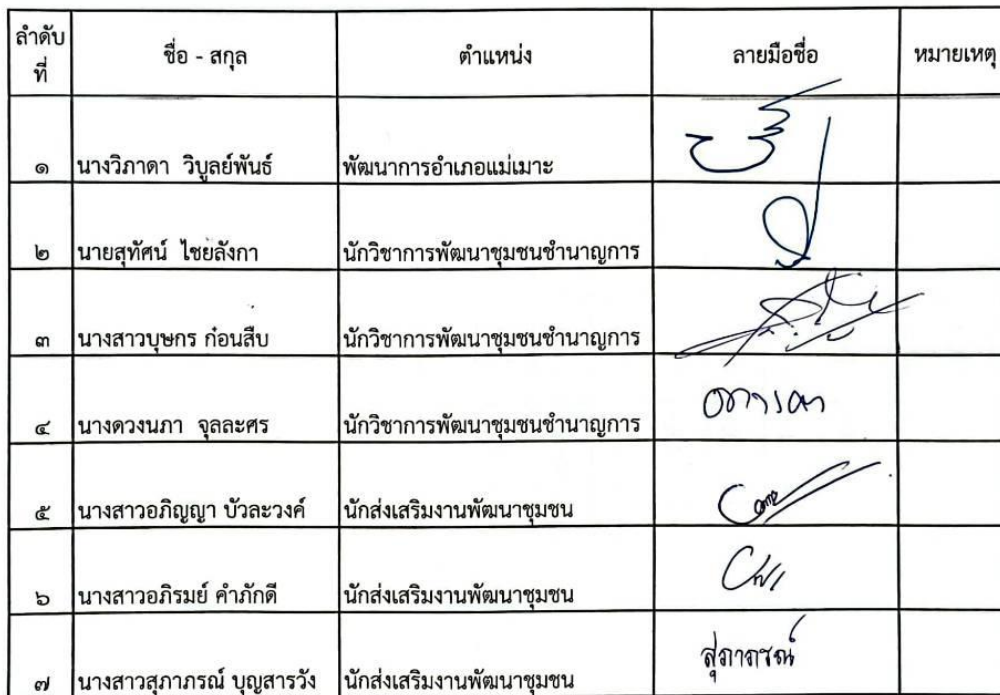 ลำดับที่ ชื่อ - สกุล ตำแหน่ง ลายมือชื่อ หมายเหตุ
๑ นางวิภาดา วิบูลย์พันธ์ พัฒนาการอำเภอแม่เมาะ
๒ นายสุทัศน์ ไชยลังกา นักวิชาการพัฒนาชุมชนชำนาญการ
๓ นางสาวบุษกร ก๋อนสืบ นักวิชาการพัฒนาชุมชนชำนาญการ
๔ นางดวงนภา จุลละศร นักวิชาการพัฒนาชุมชนชำนาญการ
๕ นางสาวอภิญญา บัวละวงค์ นักส่งเสริมงานพัฒนาชุมชน
๖ นางสาวอภิรมย์ คำภักดี นักส่งเสริมงานพัฒนาชุมชน
๗ นางสาวสุภาภรณ์ บุญสารวัง นักส่งเสริมงานพัฒนาชุมชน สุภาภรณ์